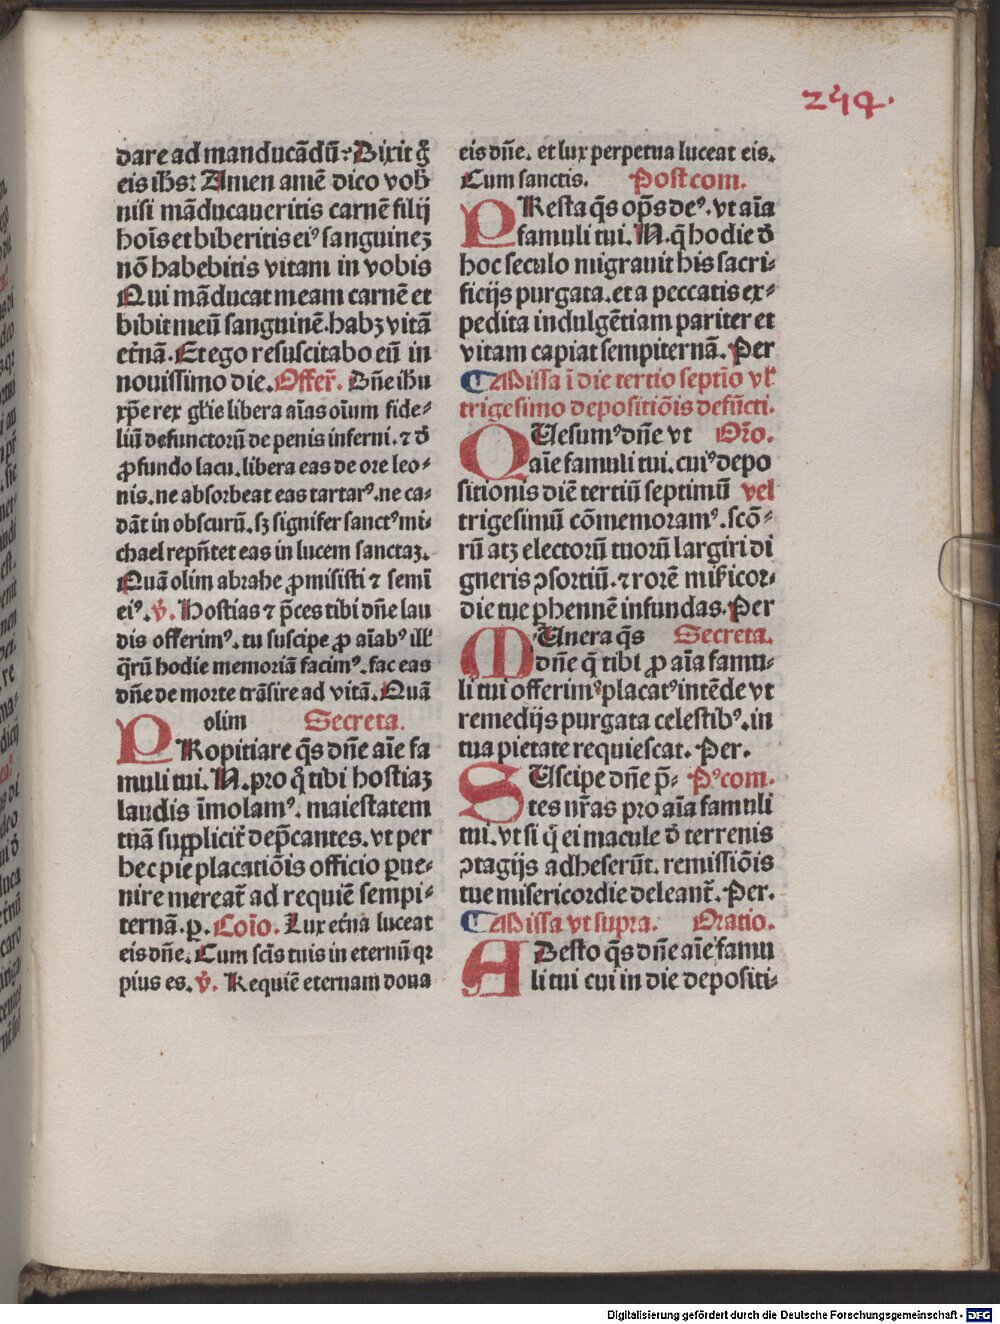 244.
dare ad manducādū? Dixit g̊
eis ih̄s: Amen amē dico vob̄
nisi māducaueritis carnē filij
hoīs et biberitis eiꝰ sanguinez
nō habebitis vitam in vobis
Qui māducat meam carnē et
bibit meū sanguinē. habꝫ vitā
et̄nā. Et ego resuscitabo eū in
nouissimo die. Offer̄. Dn̄e ihu
xp̄e rex gl̄ie libera aīas oīum fide⸗
liū defunctorū de penis inferni. ⁊ d̄
ꝓfundo lacu. libera eas de ore leo⸗
nis. ne absorbeat eas tartarꝰ. ne ca⸗
dāt in obscurū. sꝫ signifer sanctꝰ mi⸗
chael repn̄tet eas in lucem sanctaꝫ.
Quā olim abrahe ꝓmisisti ⁊ semī
eiꝰ. ℣. Hostias ⁊ p̄ces tibi dn̄e lau
dis offerimꝰ. tu suscipe ꝓ aīabꝰ ill̄
q̄rū hodie memoriā facimꝰ. fac eas
dn̄e de morte trāsire ad vitā. Quā
olim Secreta.
PRopitiare q̄s dn̄e aīe fa
muli tui. N. pro q̄ tibi hostiaꝫ
laudis īmolamꝰ. maiestatem
tuā supplicit̄ dep̄cantes. vt per
hec pie placatiōis officio ꝑue⸗
nire mereat̄ ad requiē sempi⸗
ternā. ꝑ. Coīo. Lux et̄na luceat
eis dn̄e. Cum sc̄is tuis in eternū qr
pius es. ℣. Requiē eternam dona
eis dn̄e. et lux perpetua luceat eis.
Cum sanctis. Postcom.
PResta q̄s op̄s deꝰ. vt aīa
famuli tui. N. q̄ hodie d̄
hoc seculo migrauit his sacri⸗
ficijs purgata. et a peccatis ex⸗
pedita indulgētiam pariter et
vitam capiat sempiternā. Per
Missa ī die tertio septīo vl̄
trigesimo depositiōis defūcti.
QUesumꝰ dn̄e vt Or̄o.
aīe famuli tui. cuiꝰ depo
sitionis diē tertiū septimū vel
trigesimū cōmemoramꝰ. scō⸗
rū atꝫ electorū tuorū largiri di
gneris ꝯsortiū. ⁊ rorē mīcor⸗
die tue ꝑhennē infundas. Per
MUnera q̄s Secreta.
dn̄e q̄ tibi ꝓ aīa famu⸗
li tui offerimꝰ placatꝰ intēde vt
remedijs purgata celestibꝰ. in
tua pietate requiescat. Per.
SUscipe dn̄e p̄⸗ Pꝰcom.
tes nr̄as pro aīa famuli
tui. vt si q̄ ei macule d̄ terrenis
ꝯtagijs adheserūt. remissiōis
tue misericordie deleant̄. Per.
Missa vt supra. Oratio.
ADesto q̄s dn̄e aīe famu
li tui cui in die depositi⸗
Digitalisierung gefördert durch die Deutsche Forschungsgemeinschaft - DFG